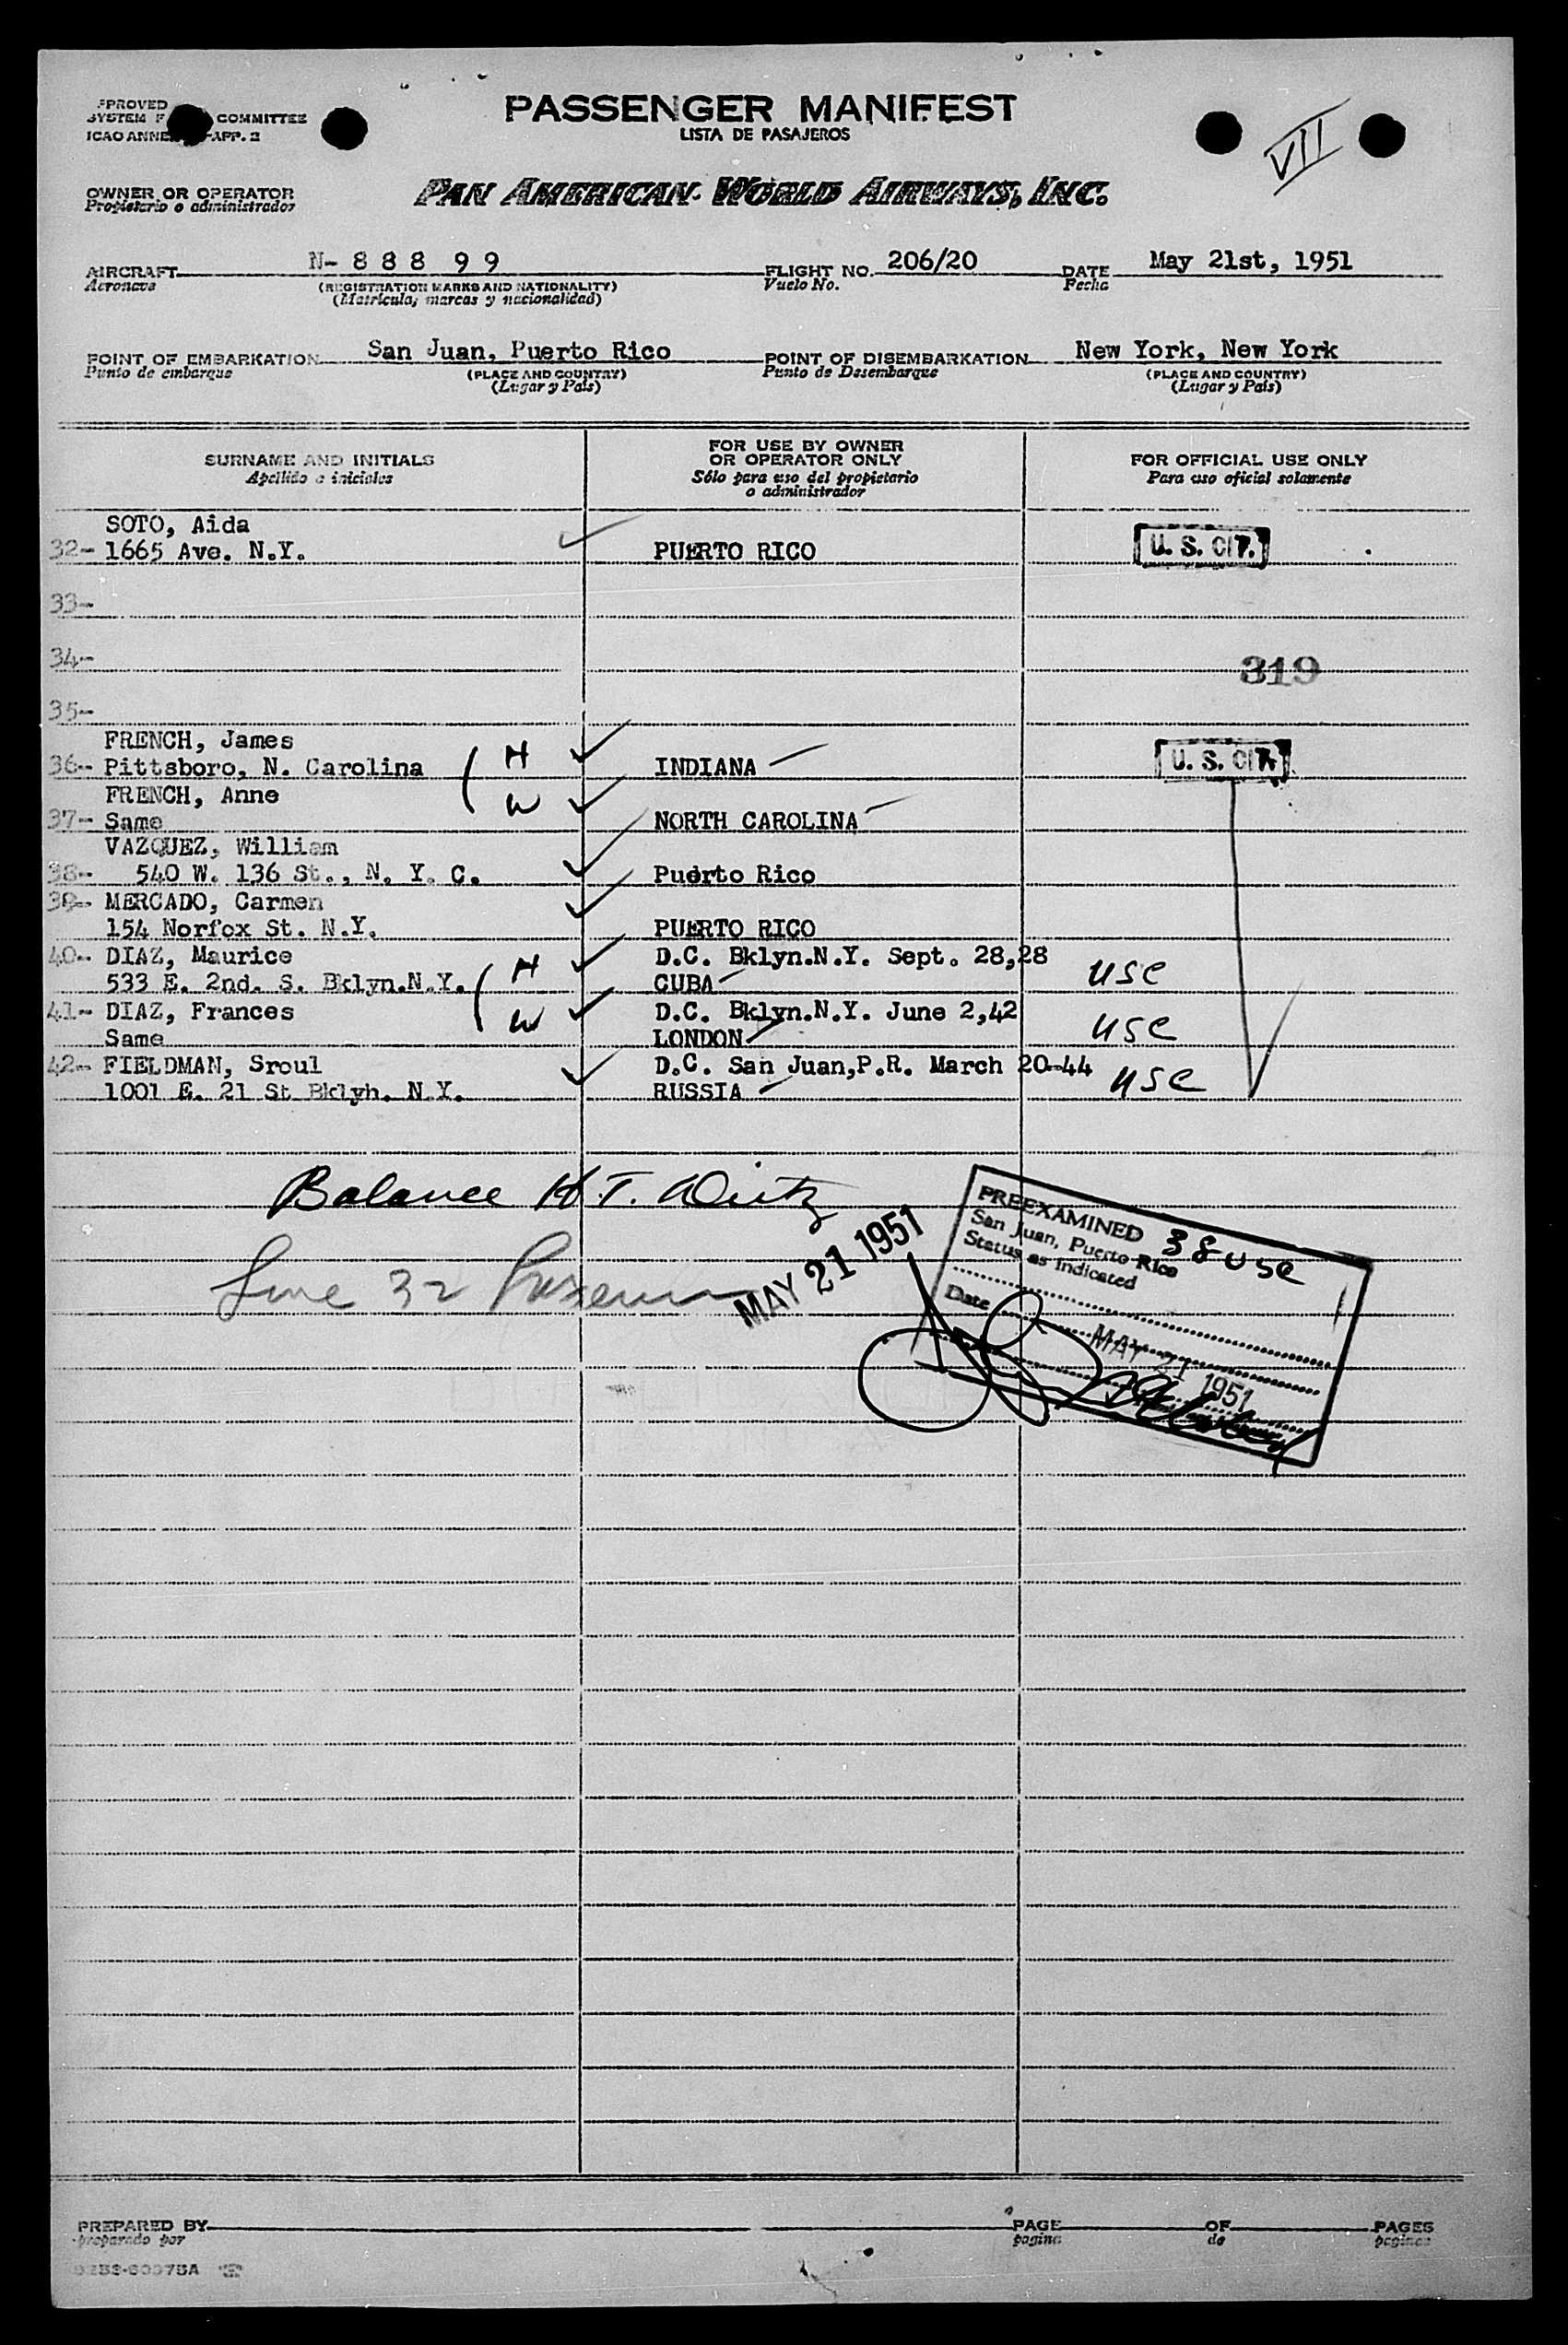 PASSENGER MANIFEST
LISTA DE PASAJEROS
COMMITTEE
ICAO
APP. 2
VII
OWNER OR OPERATOR
Propietario o administrador
PAN AMERICAN WORLD AIRWAYS, INC.
AIRCRAFT N- 8 8 8 9 9 FLIGHT NO. 206/20 DATE May 21st, 1951
Aeronave (REGISTRATION MARKS AND NATIONALITY) Vuelo No. Fecha
(Matrícula, marcas y nacionalidad)
POINT OF EMBARKATION San Juan, Puerto Rico POINT OF DISEMBARKATION New York, New York
Punto de embarque (PLACE AND COUNTRY) Punto de Desembarque (PLACE AND COUNTRY)
(Lugar y País) (Lugar y País)
SURNAME AND INITIALS
Apellido e iniciales
FOR USE BY OWNER
OR OPERATOR ONLY
Sólo para uso del propietario
o administrador
FOR OFFICIAL USE ONLY
Para uso oficial solamente
SOTO, Aida
32- 1665 Ave. N.Y. PUERTO RICO U. S. CIT.
33-
34- 319
35-
FRENCH, James
36- Pittsboro, N. Carolina H INDIANA U. S. CIT.
FRENCH, Anne W
37- Same NORTH CAROLINA
VAZQUEZ, William
38- 540 W. 136 St., N. Y. C. Puerto Rico
39- MERCADO, Carmen
154 Norfox St. N.Y. PUERTO RICO
40- DIAZ, Maurice H D.C. Bklyn.N.Y. Sept. 28,28
533 E. 2nd. S. Bklyn.N.Y. CUBA USC
41- DIAZ, Frances W D.C. Bklyn.N.Y. June 2,42
Same LONDON USC
42- FIELDMAN, Sroul D.C. San Juan,P.R. March 20-44
1001 E. 21 St Bklyh. N.Y. RUSSIA USC
Balance H.T.
Line 32
MAY 21 1951
PREEXAMINED 38 USC
San Juan, Puerto Rico
Status as indicated
Date
MAY 21 1951
PREPARED BY PAGE OF PAGES
preparado por pagina de paginas